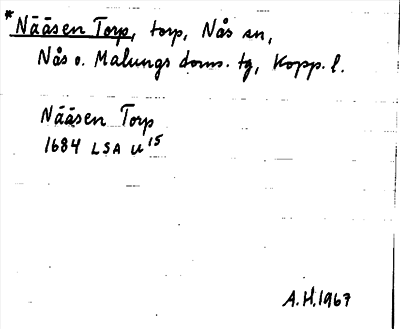 *Nääsen Torp, torp, Nås sn,
Nås o. Malungs doms. tg, Kopp. l.
Nääsen Torp
1684 LSA U 15
A.H. 1967